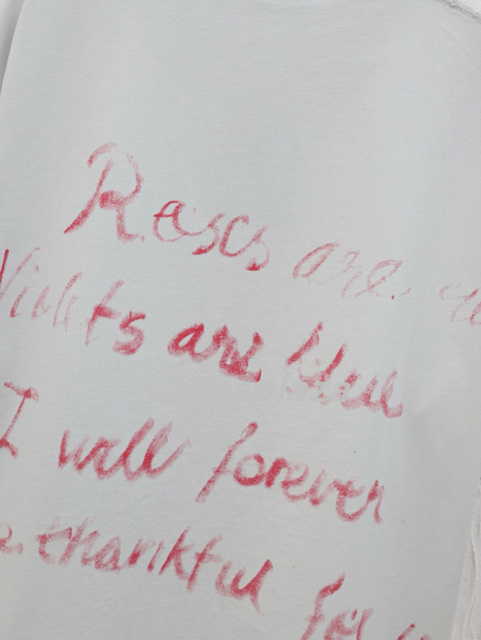 Roses are
Violets are blue
I will forever
thankful for